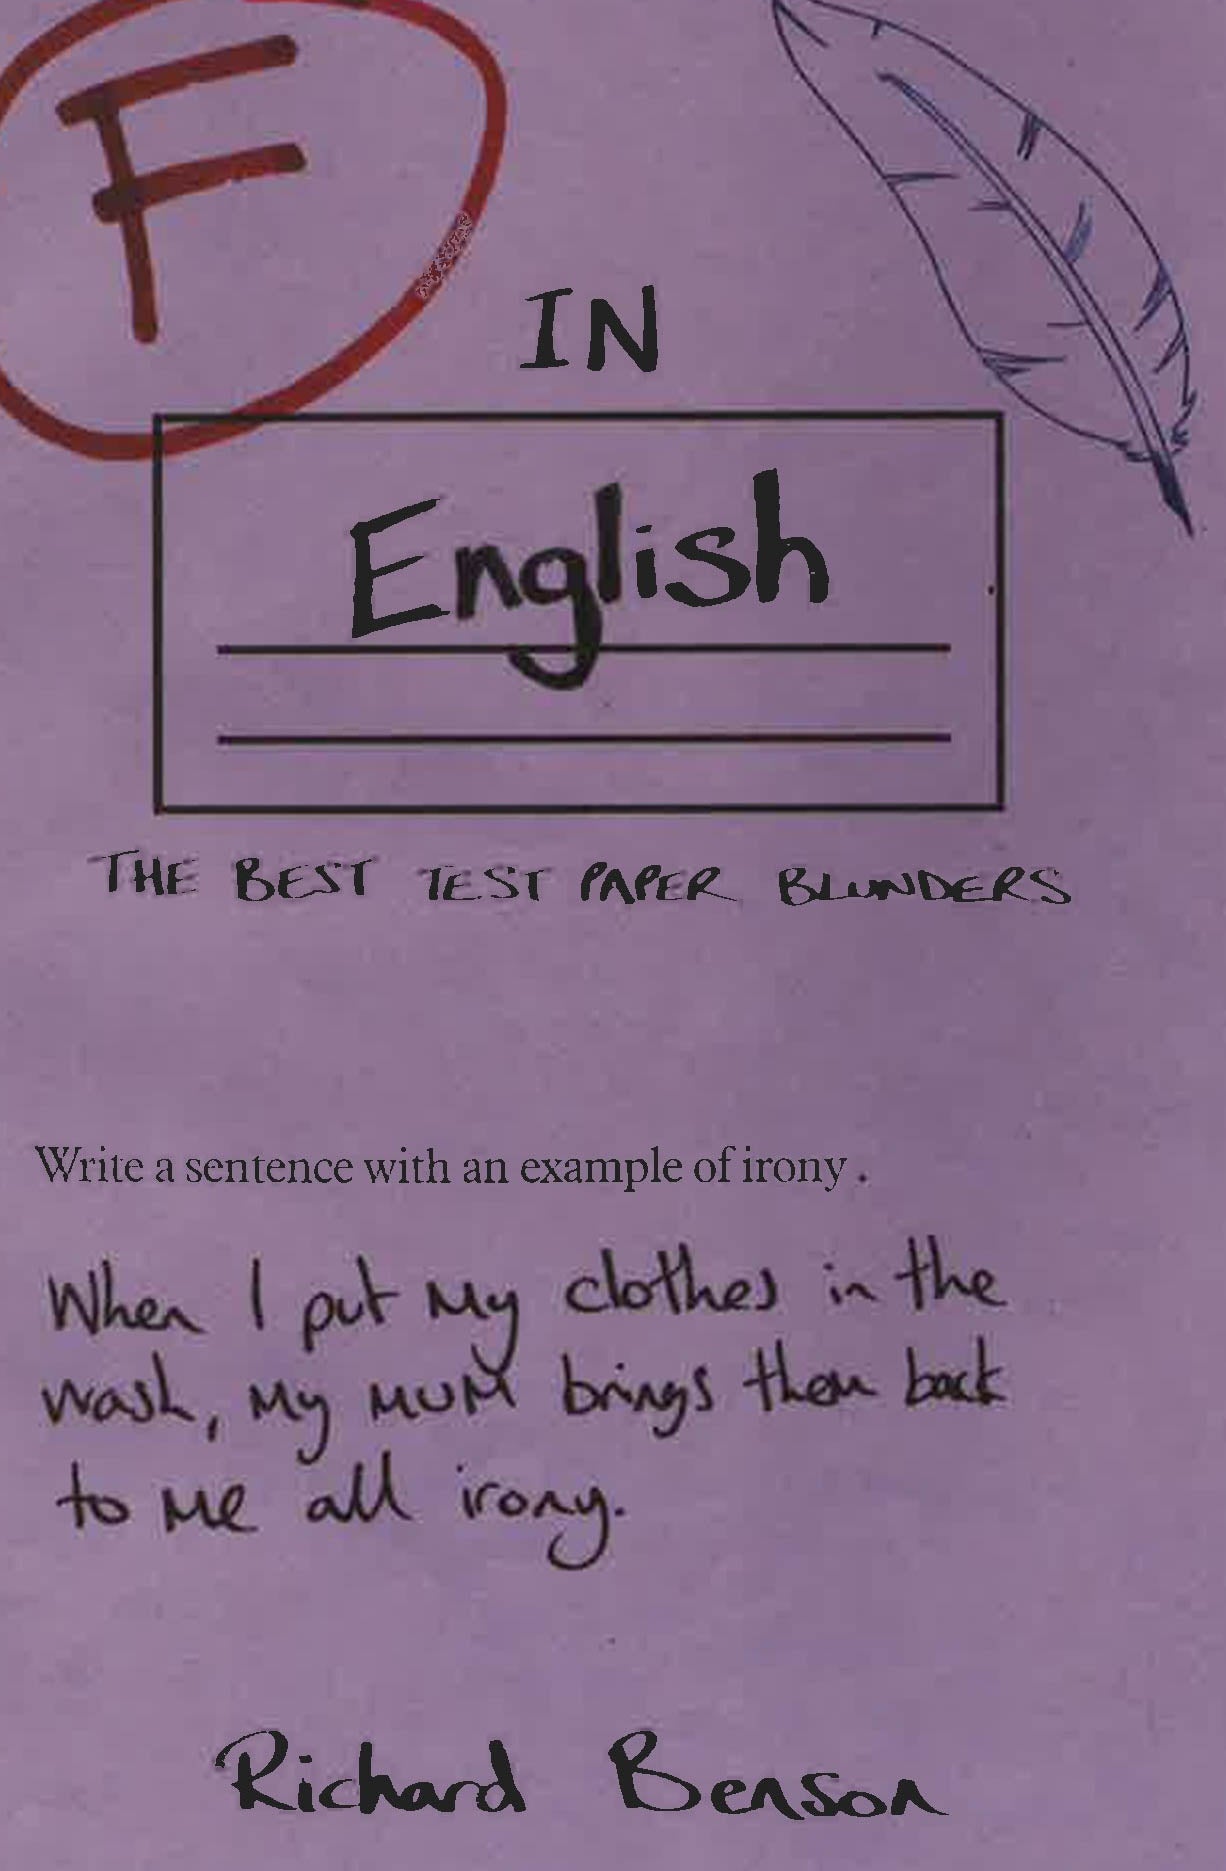 F
IN
English
THE BEST TEST PAPER BLUNDERS
Write a sentence with an example of irony.
When I put my clothes in the
wash, my mum brings them back
to me all irony.
Richard Benson